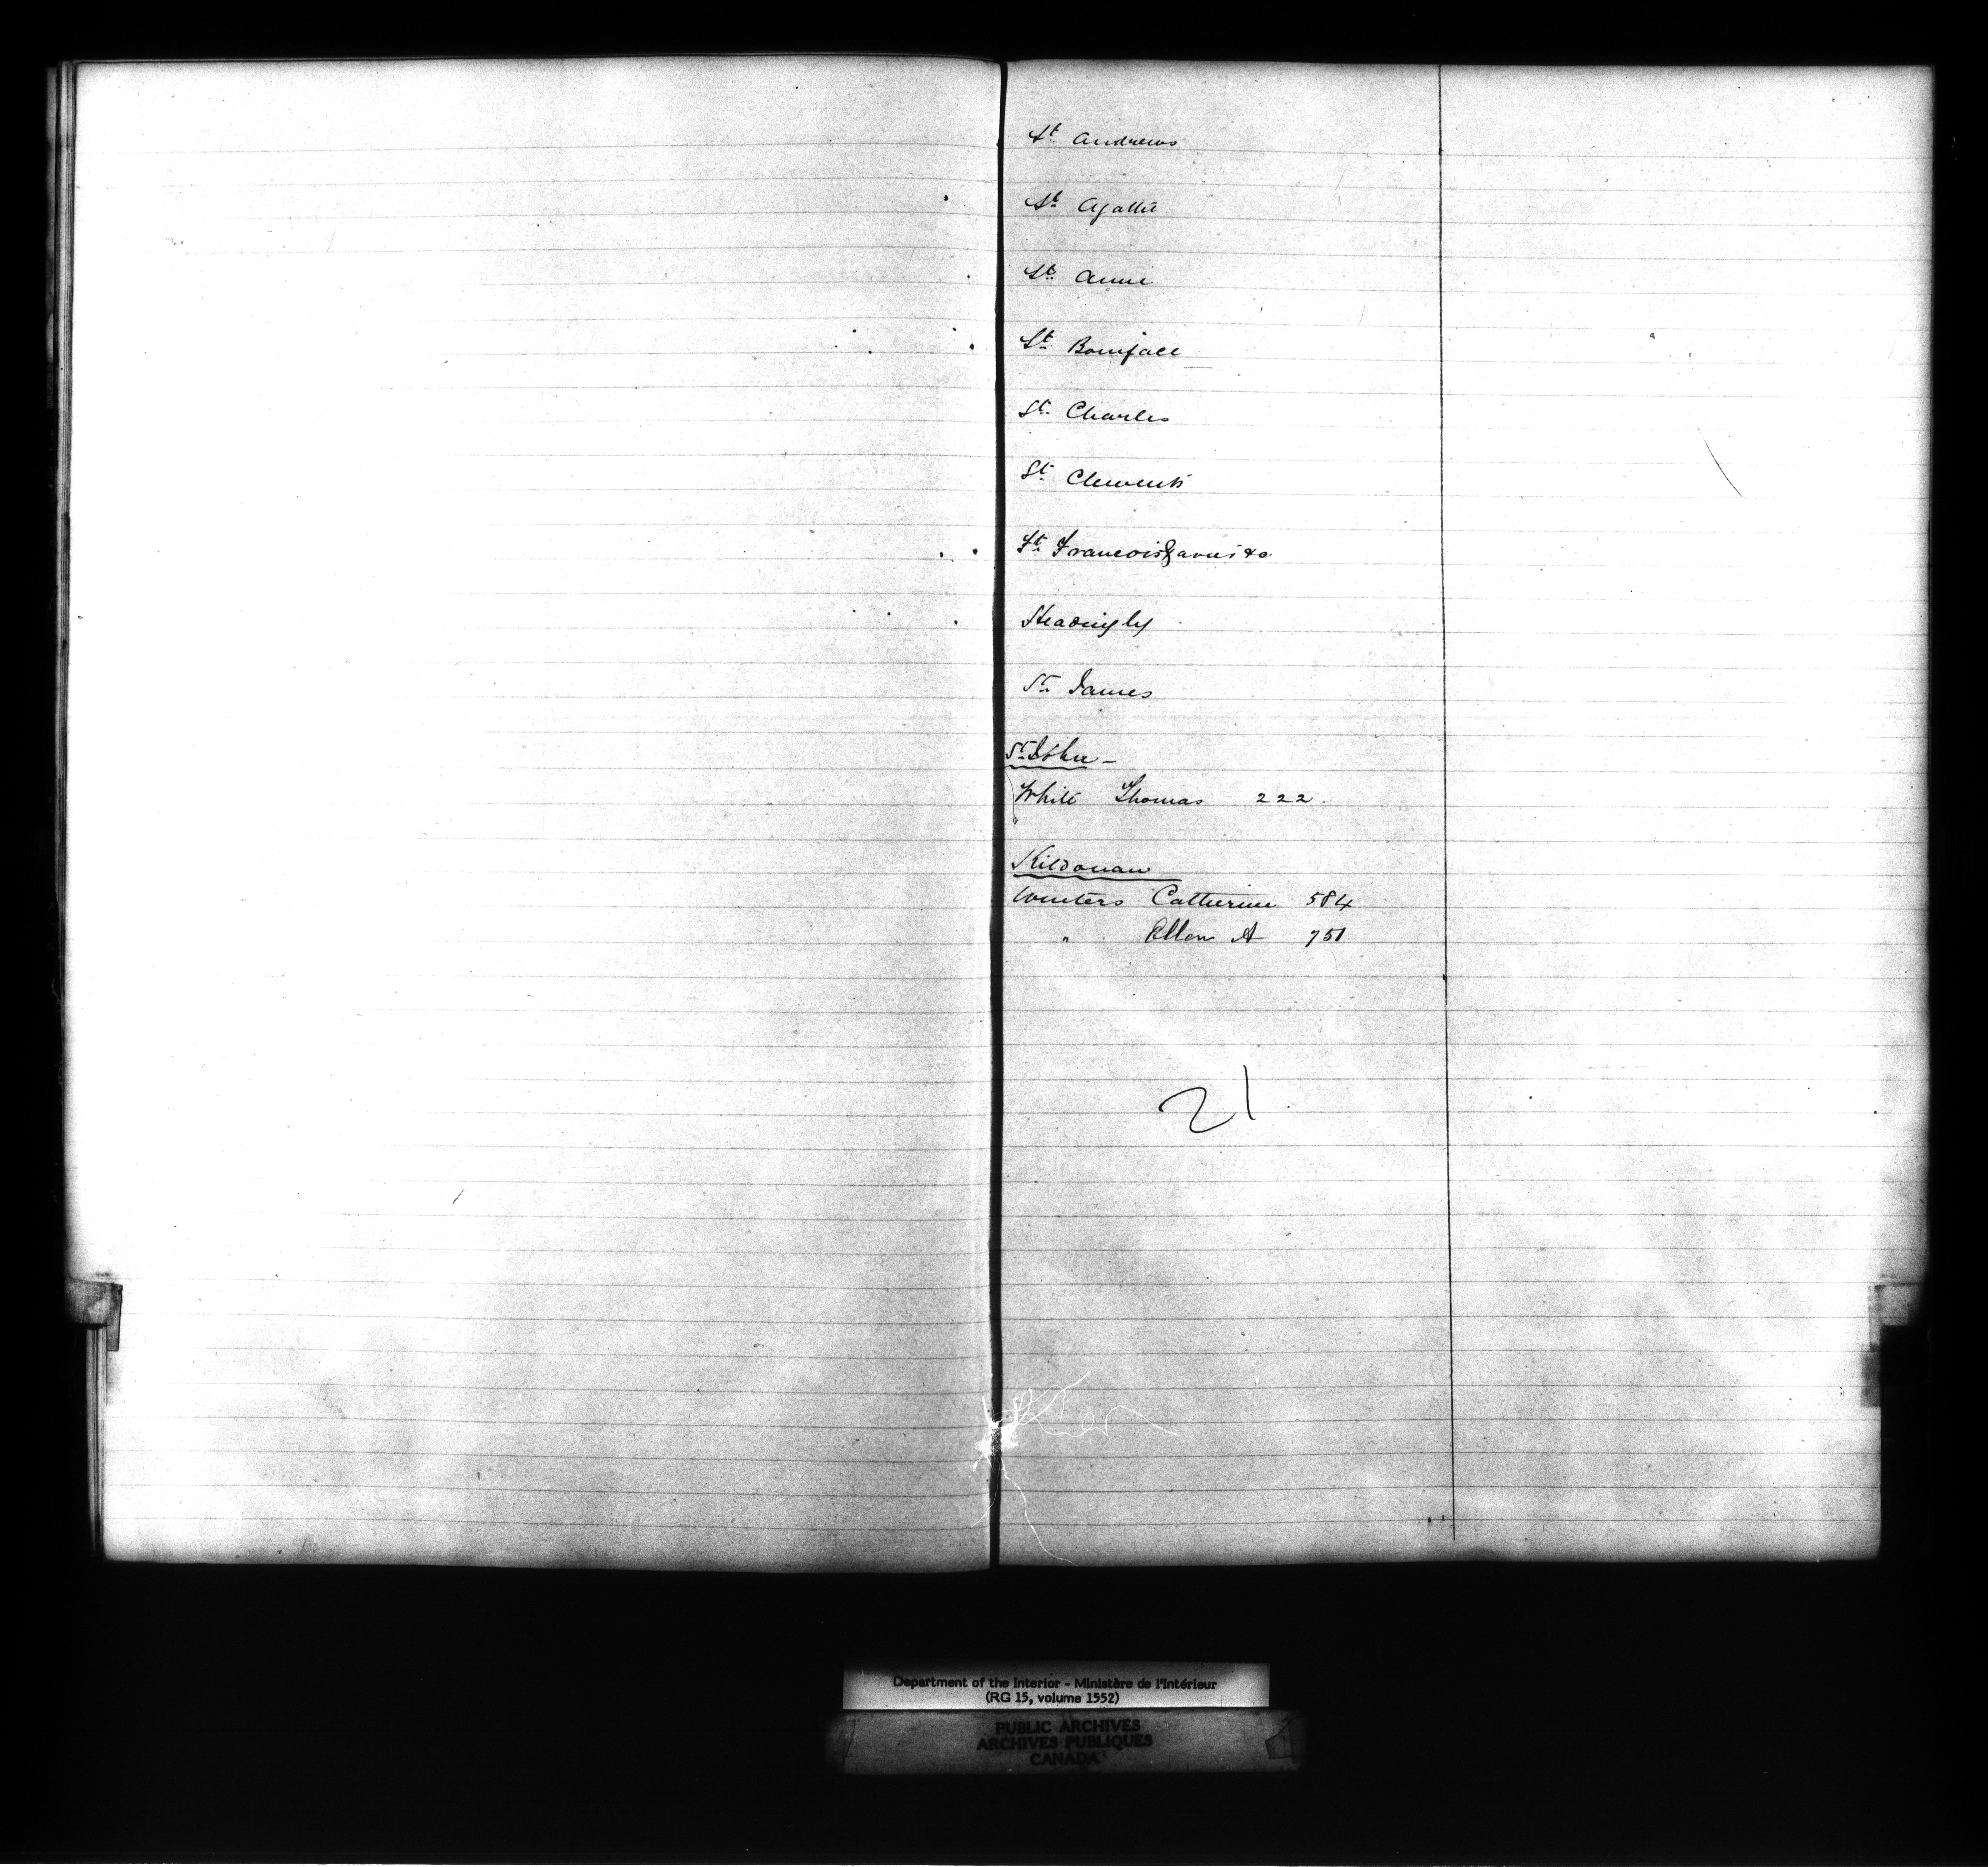 St Andrews
St Agathe
St Anne
St Boniface
St Charles
St Clements
St Francois Xavier &c
Headingly
St James
St John –
White Thomas 222.
Kildonan
Winters Catherine 584
" Ellen A 751
21
Department of the Interior - Ministère de l'Intérieur
(RG 15, volume 1552)
PUBLIC ARCHIVES
ARCHIVES PUBLIQUES
CANADA